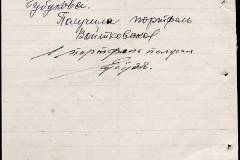 Бубукова.
Получила портфель
Войтковской
1 портфель получил